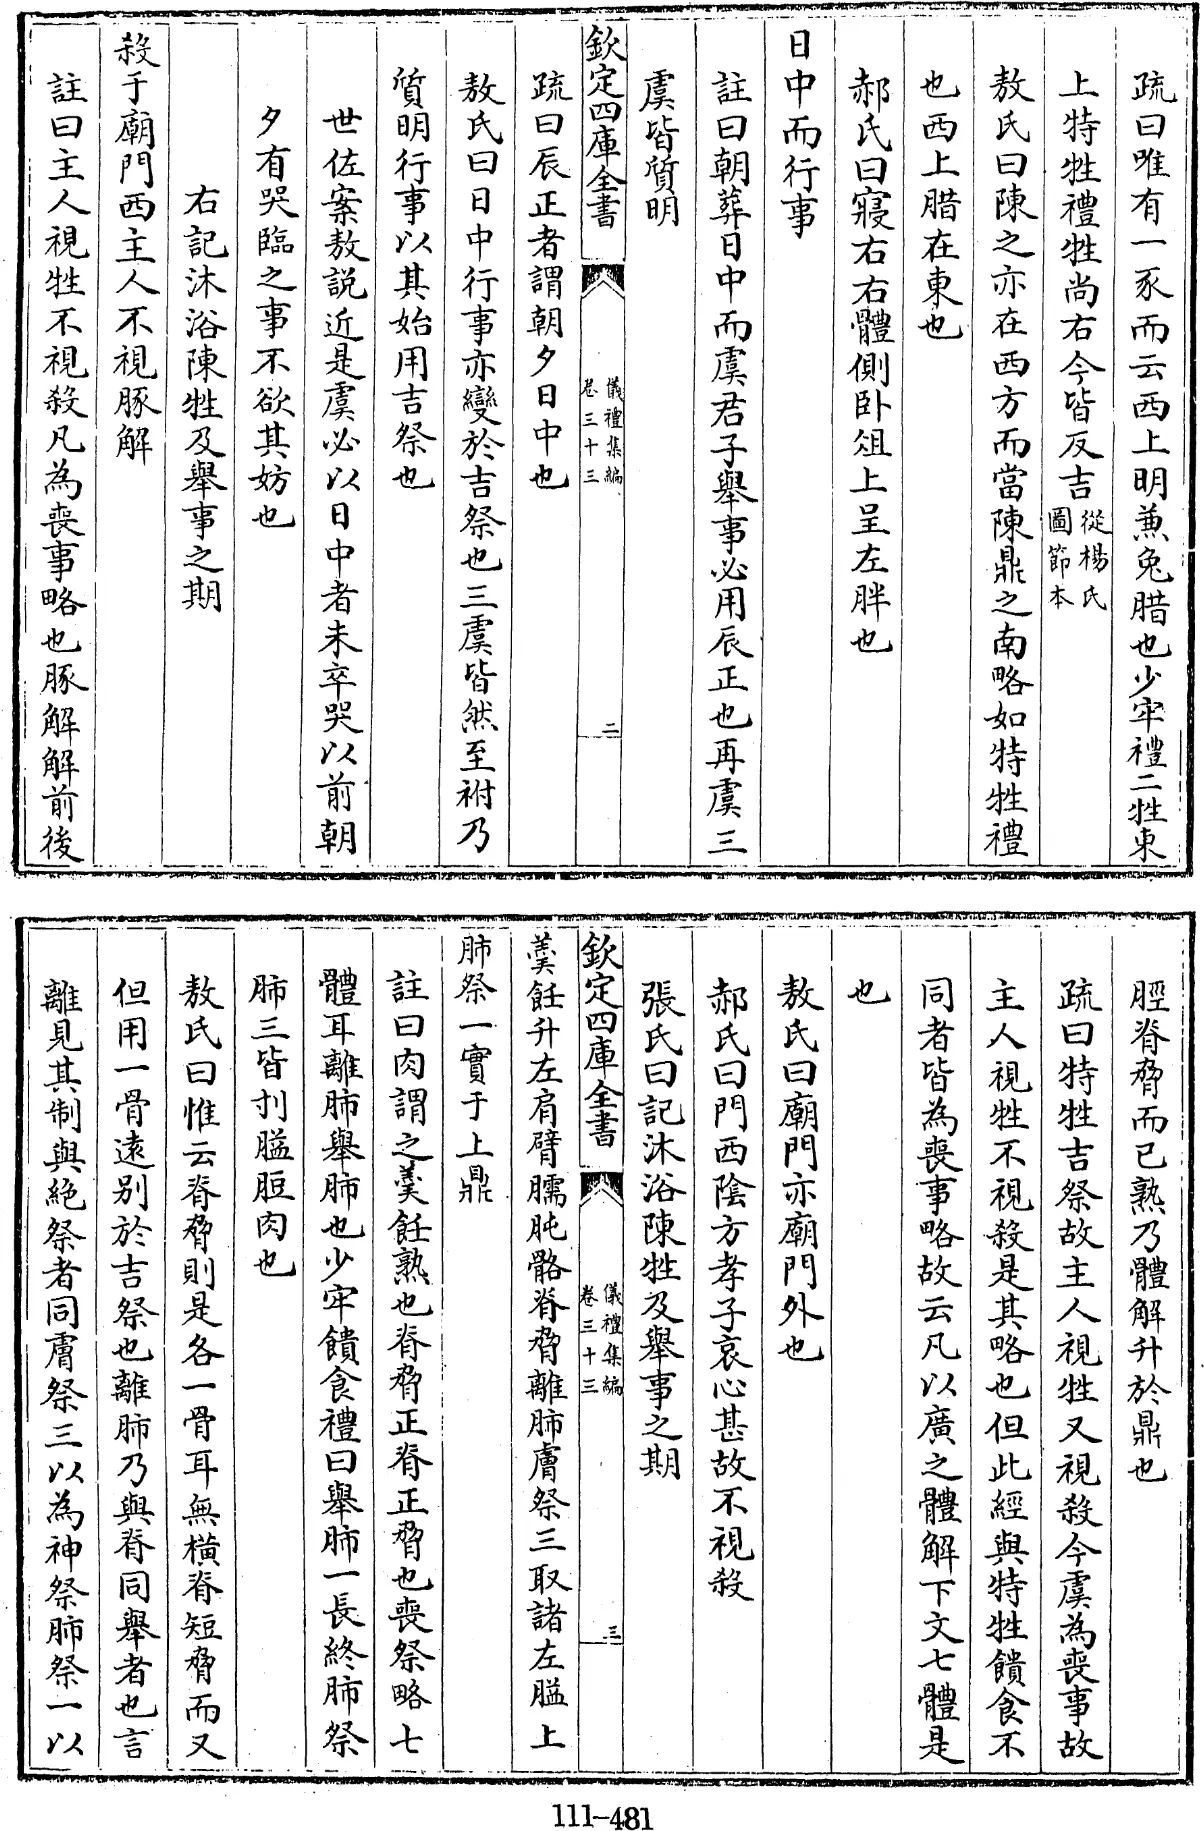 疏曰唯有一豕而云西上明兼兔腊也少牢禮二牲東
上特牲禮牲尚右今皆反吉從楊氏圖節本
敖氏曰陳之亦在西方而當陳鼎之南略如特牲禮
也西上腊在東也
郝氏曰寢右右體側卧俎上呈左胖也
日中而行事
註曰朝葬日中而虞君子舉事必用辰正也再虞三
虞皆質明
欽定四庫全書
儀禮集編
卷三十三
二
疏曰辰正者謂朝夕日中也
敖氏曰日中行事亦變於吉祭也三虞皆然至祔乃
質明行事以其始用吉祭也
世佐案敖說近是虞必以日中者未卒哭以前朝
夕有哭臨之事不欲其妨也
右記沐浴陳牲及舉事之期
殺于廟門西主人不視豚解
註曰主人視牲不視殺凡為喪事略也豚解解前後
脛脊脅而已熟乃體解升於鼎也
疏曰特牲吉祭故主人視牲又視殺今虞為喪事故
主人視牲不視殺是其略也但此經與特牲饋食不
同者皆為喪事略故云凡以廣之體解下文七體是
也
敖氏曰廟門亦廟門外也
郝氏曰門西陰方孝子哀心甚故不視殺
張氏曰記沐浴陳牲及舉事之期
欽定四庫全書
儀禮集編
卷三十三
三
羹飪升左肩臂臑肫骼脊脅離肺膚祭三取諸左膉上
肺祭一實于上鼎
註曰肉謂之羹飪熟也脊脅正脊正脅也喪祭略七
體耳離肺舉肺也少牢饋食禮曰舉肺一長終肺祭
肺三皆刌膉脰肉也
敖氏曰惟云脊脅則是各一骨耳無橫脊短脅而又
但用一骨遠別於吉祭也離肺乃與脊同舉者也言
離見其制與絶祭者同膚祭三以為神祭肺祭一以
111-481